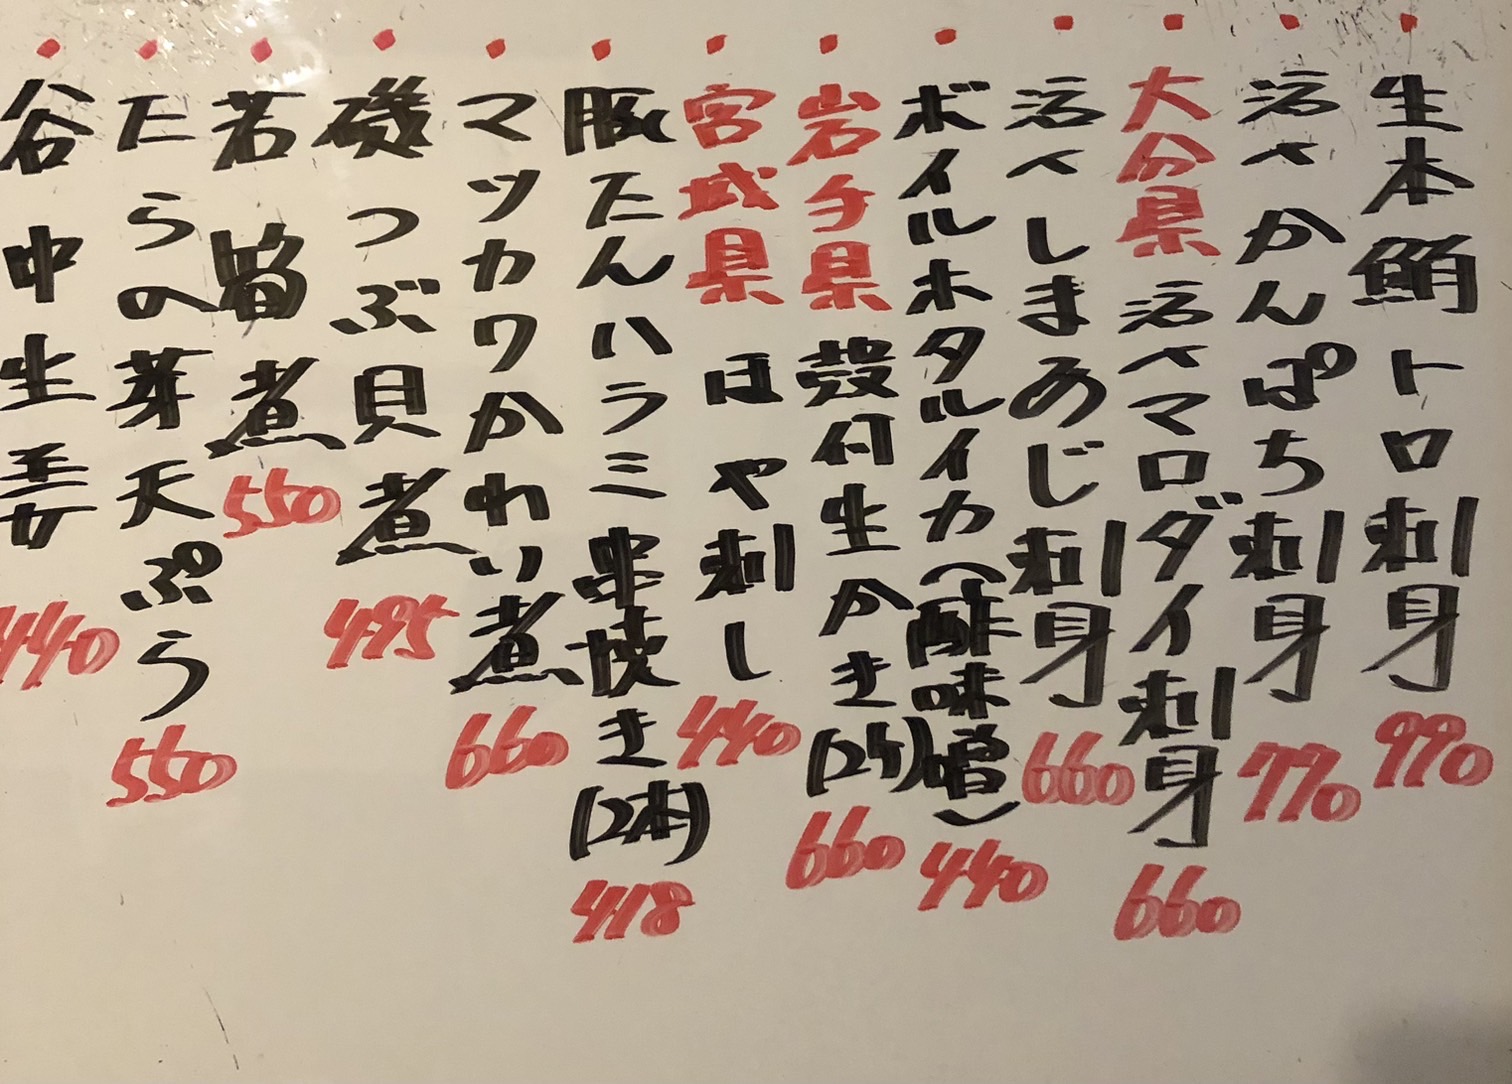 ・生本鮪トロ刺身 990
・活〆かんぱち刺身 770
・大分県 活〆マロダイ刺身 660
・活〆しまあじ刺身 660
・ボイルホタルイカ(酢味噌) 440
・岩手県 殻付生かき(2ケ) 660
・宮城県 ほや刺し 440
・豚たんハラミ串焼き(2本) 418
・マツカワかれい煮 660
・磯つぶ貝煮 495
・若筍煮 550
・たらの芽天ぷら 550
・谷中生姜 440